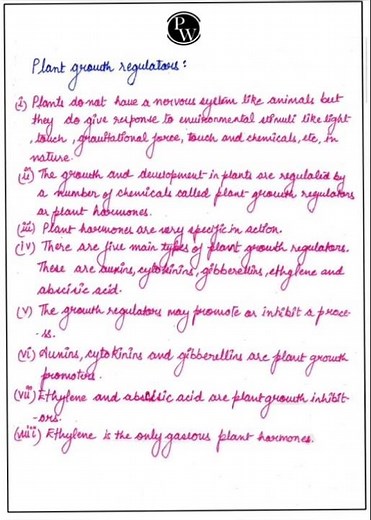 P
W
Plant growth regulators:
(i) Plants do not have a nervous system like animals but
they do give response to environmental stimuli like light
, touch, gravitational force, touch and chemicals, etc, in
nature.
(ii) The growth and development in plants are regulated by
a number of chemicals called plant growth regulators
or plant hormones.
(iii) Plant hormones are very specific in action.
(iv) There are five main types of plant growth regulators.
These are auxins, cytokinins, gibberellins, ethylene and
abscisic acid.
(v) The growth regulators may promote or inhibit a proce-
-ss.
(vi) Auxins, cytokinins and gibberellins are plant growth
promoters.
(vii) Ethylene and abscisic acid are plant growth inhibit-
-ors.
(viii) Ethylene is the only gaseous plant hormones.